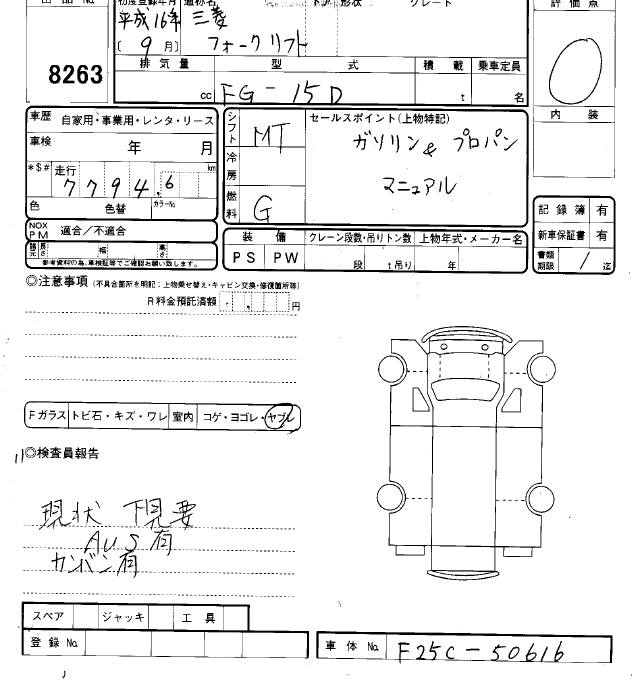 出品 No.
初度登録年月 通称名 ドア 形状 グレード
評価点
平成16年 三菱
〔 9 月〕 フォークリフト
8263
排気量 型式 積載 乗車定員
cc FG-15D t 名
内装
車歴 自家用・事業用・レンタ・リース
シフト MT
セールスポイント(上物特記)
車検 年 月
ガソリン& プロパン
冷房
*$# 走行 km
7794.6
マニュアル
燃料 G
色 色替 カラーNo.
記録簿 有
NOX PM 適合/不適合
装備 クレーン段数・吊りトン数 上物年式・メーカー名
新車保証書 有
諸元 長さ 幅 高さ
PS PW 段 t吊り 年
書類期限 / 迄
参考資料の為、車検証等でご確認お願い致します。
◎注意事項 (不具合箇所を明記:上物乗せ替え・キャビン交換・修復箇所等)
R料金預託済額 円
Fガラス トビ石・キズ・ワレ 室内 コゲ・ヨゴレ・ヤブレ
◎検査員報告
現状 下見要
AUS有
カンバン有
スペア ジャッキ 工具
登録 No.
車体 No. F25C-50616